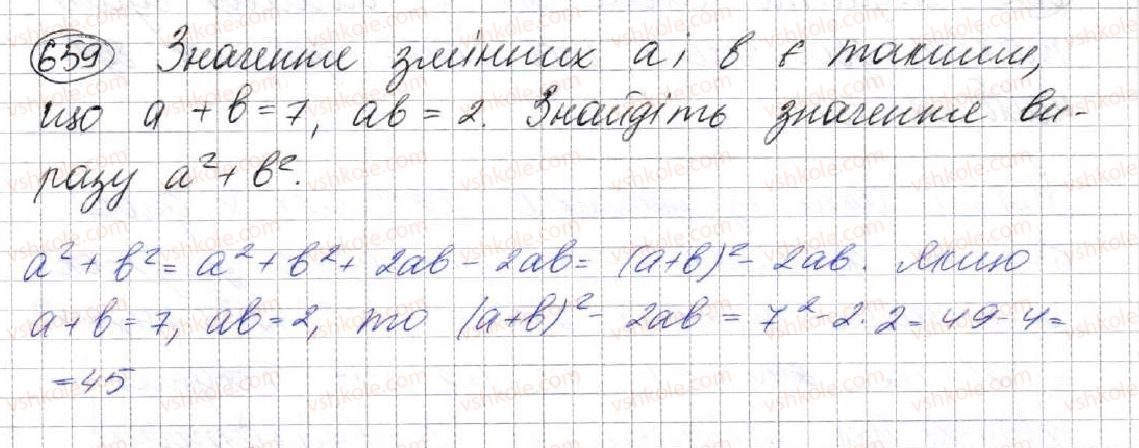 659 Значення змінних a і b є такими,
що a + b = 7, ab = 2. Знайдіть значення ви-
разу a² + b².
a² + b² = a² + b² + 2ab - 2ab = (a+b)² - 2ab. Якщо
a + b = 7, ab = 2, то (a+b)² - 2ab = 7² - 2·2 = 49 - 4 =
= 45